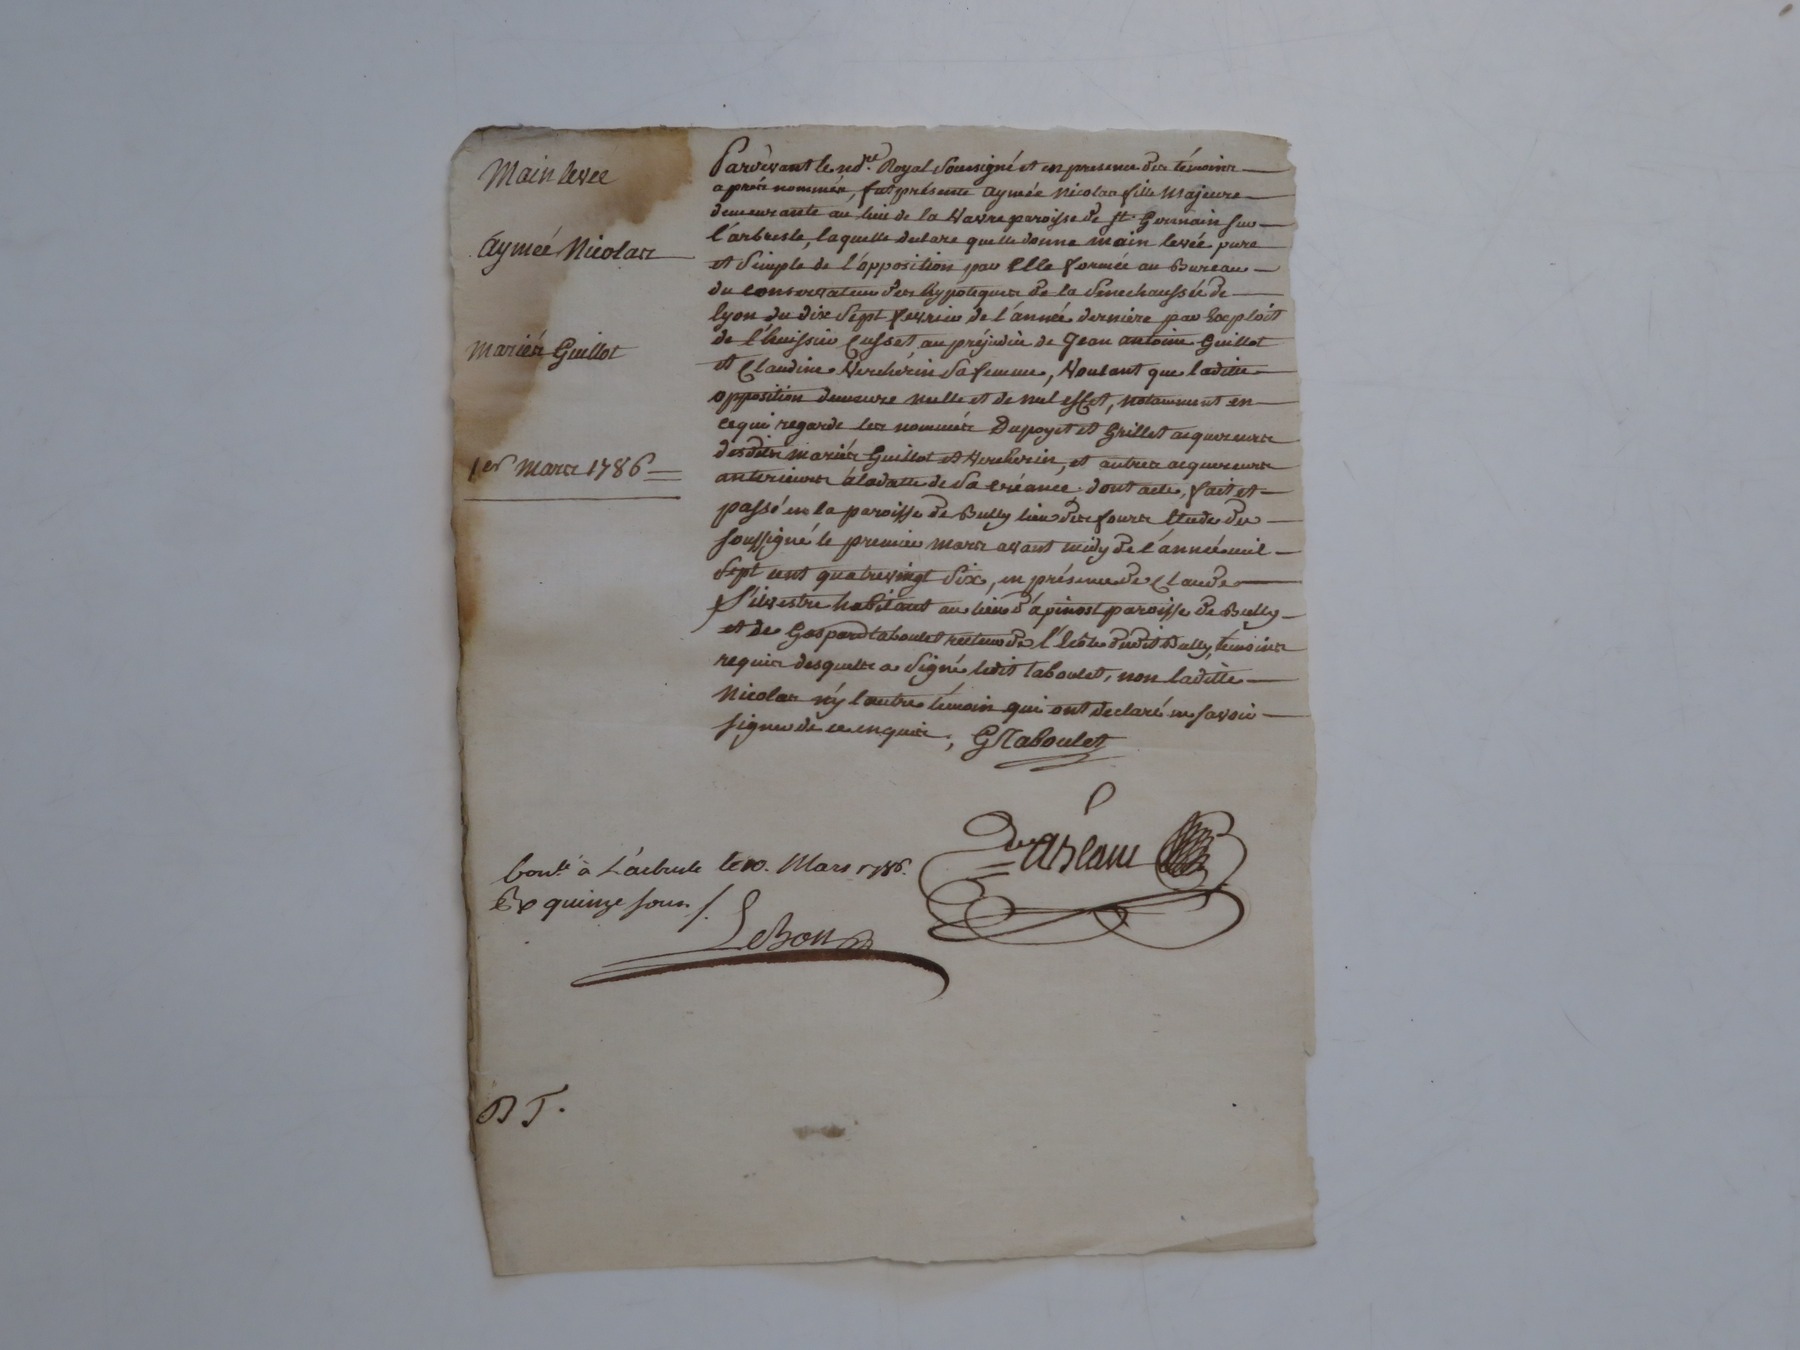 Main levée
Aymeé Nicolas
Mariés Guillot
1er Mars 1786
Pardevant le nore. Royal soussigné et en presence des témoins
aprés nommés, fut présente aymée Nicolas fille Majeure
demeurante au lieu de la Vavre paroisse de st Germain sur
l'arbresle, laquelle declare quelle donne main levée pure
et simple de l'opposition par Elle formée au Bureau
du conservateur des hypoteques de la senechaussée de
lyon du dix sept fevrier de l'année derniere par Exploit
de l'huissier Cusset, au préjudice de Jean antoine Guillot
et Claudine Vercherin sa femme, Voulant que laditte
opposition demeure nulle et de nul effet, notamment en
ce qui regarde les nommés Dupoyet et Grillet acquereurs
desdits mariés Guillot et Vercherin, et autres acquereurs
anterieurs à la datte de sa créance. dont acte, fait et
passé en la paroisse de Bully lieu des fours Etude du
soussigné le premier mars avant midy de l'année mil
sept cent quatrevingt six, en présence de Claude
Silvestre habitant au lieu d'apinost paroisse de Bully
et de Gaspard taboulet recteur de l'Ecole dudit Bully, témoins
requis desquels a signé ledit taboulet, non laditte
Nicolas n'y l'autre témoin qui ont declaré ne savoir
signer de ce enquis, G Taboulet
Conlé à L'arbresle le 10. Mars 1786.
quinze sous
LeBon
B T.